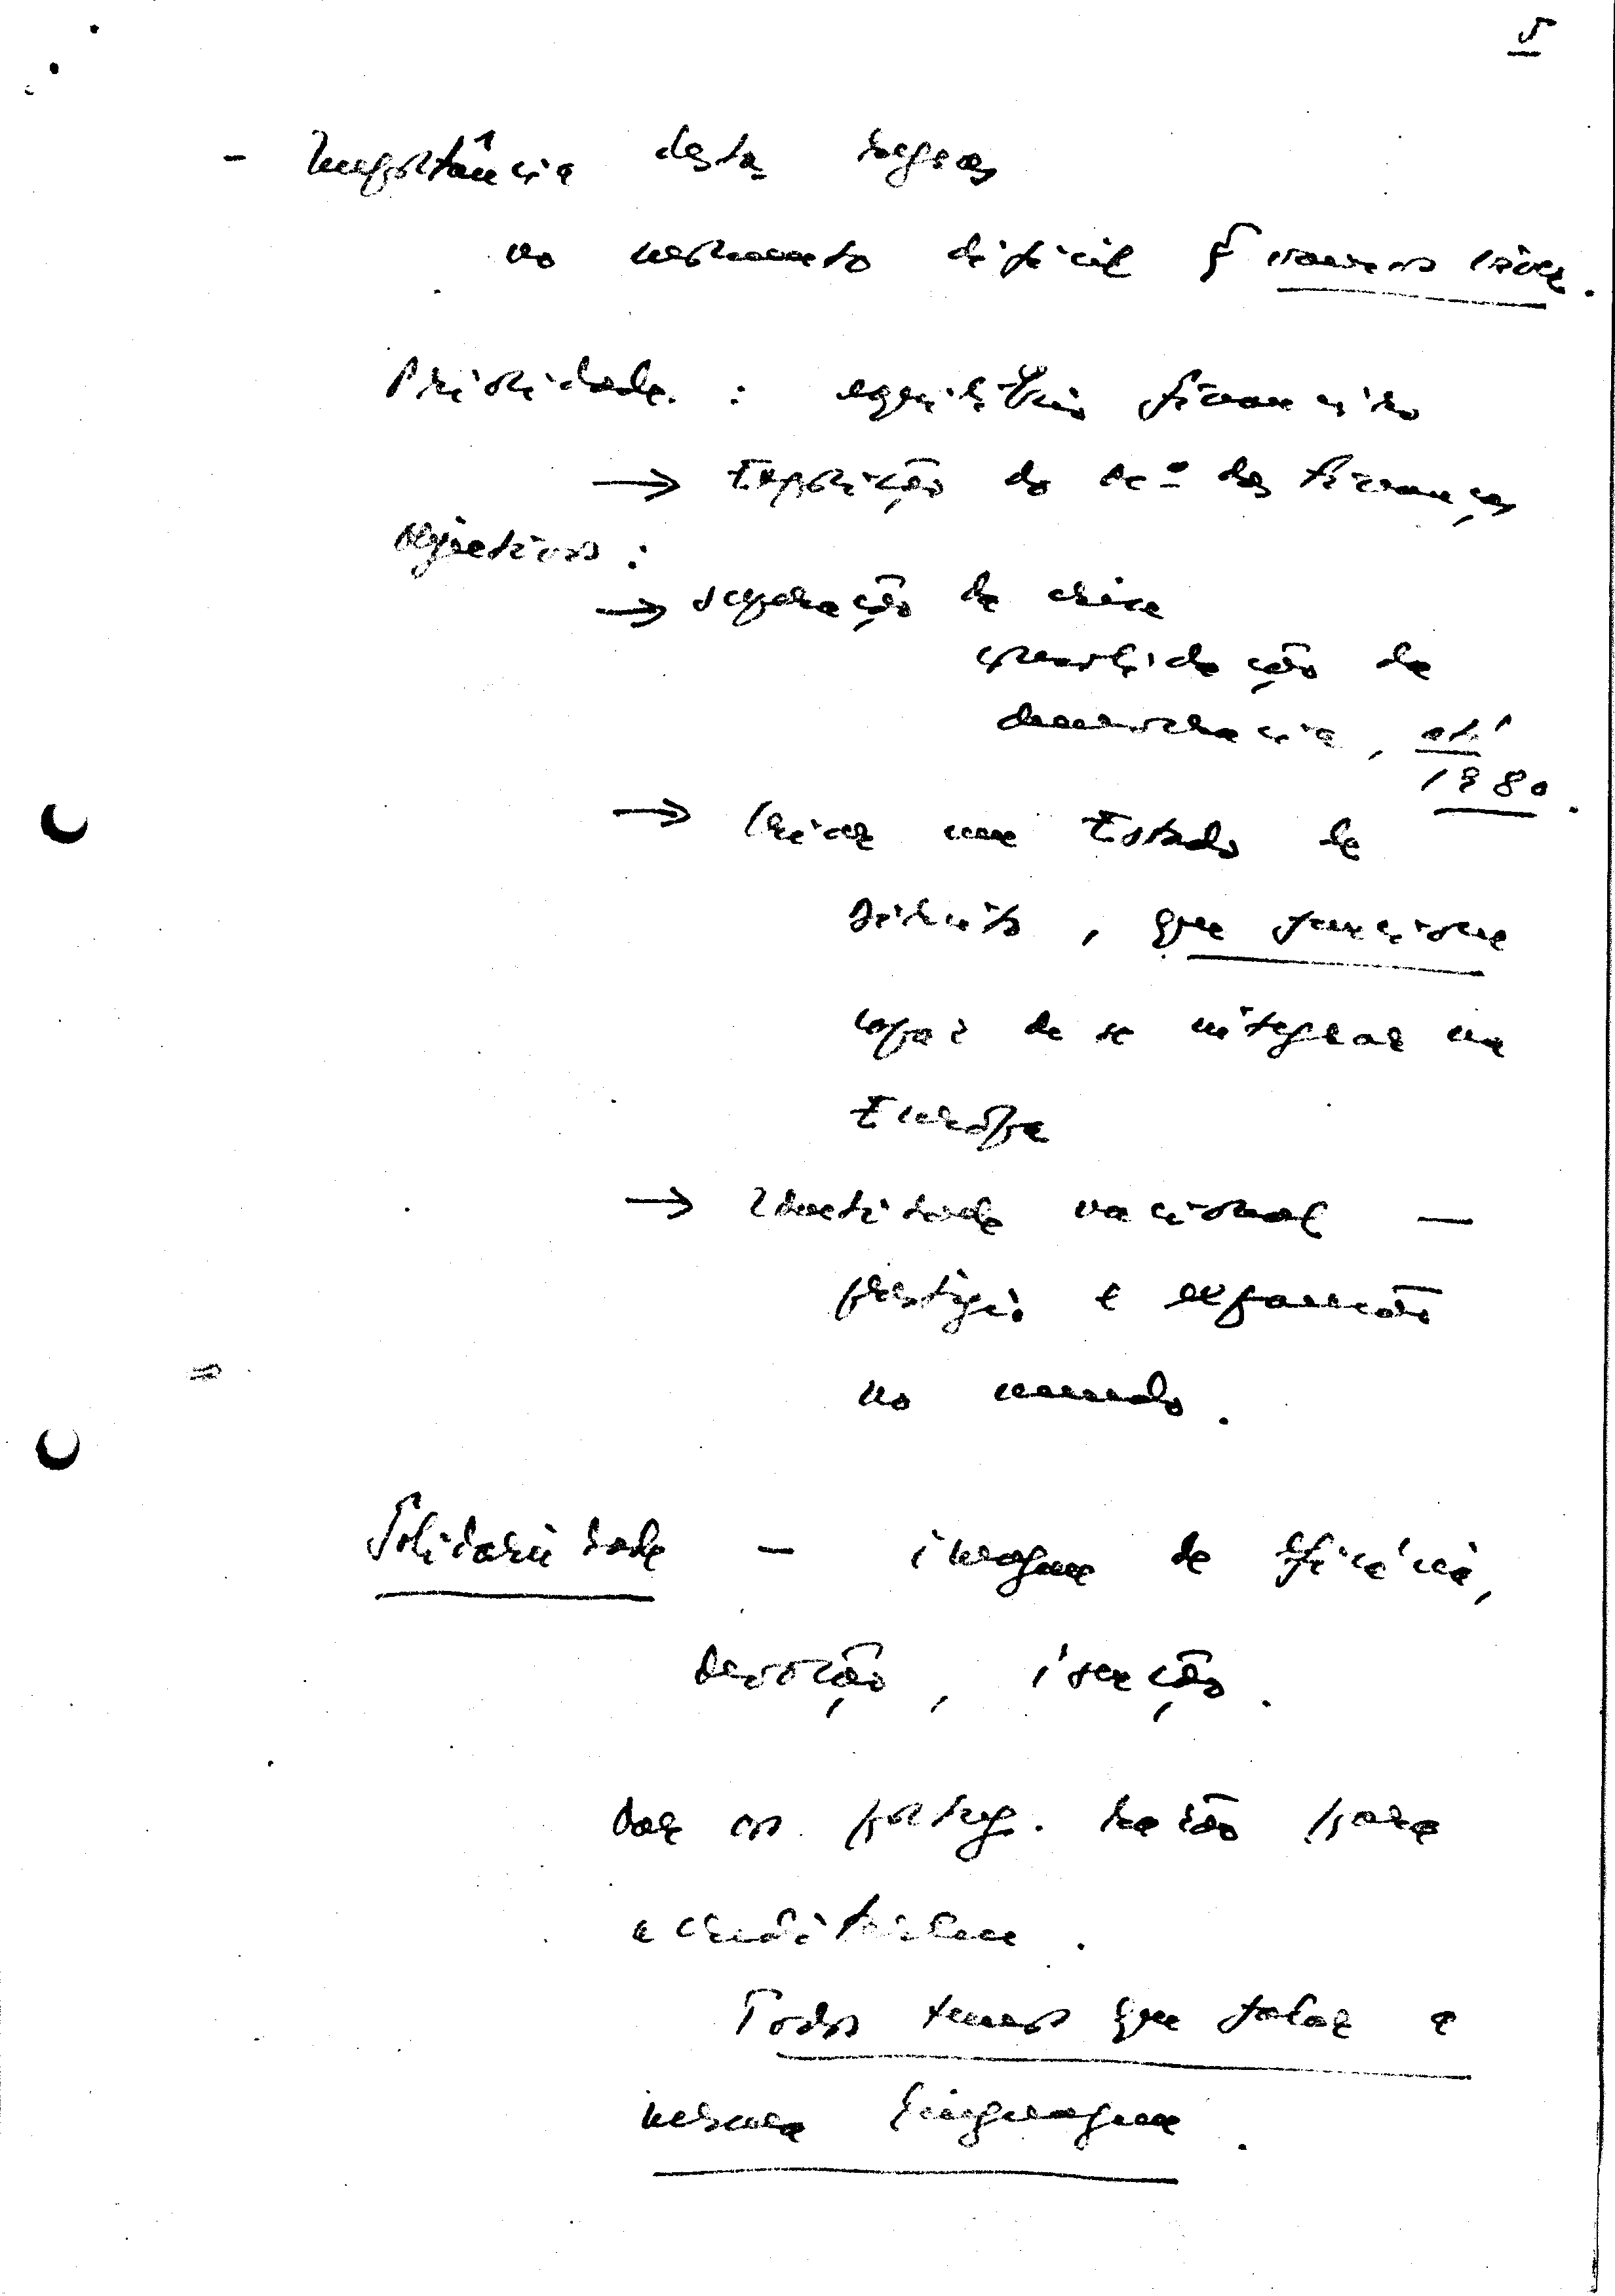 5
- Importância destas regras
no momento difícil q vamos viver.
Prioridade : equilíbrio financeiro
→ Exposição do Mº das Finanças
Objectivos :
→ superação da crise
consolidação da
democracia, até
1980.
→ Criar um Estado de
Direito, que funcione
capaz de se integrar na
Europa
→ Identidade nacional —
prestígio e expansão
no mundo.
Solidariedade — imagem de eficácia,
devoção, isenção.
Dar os portug. razão para
acreditarem.
Todos temos que falar a
mesma linguagem.